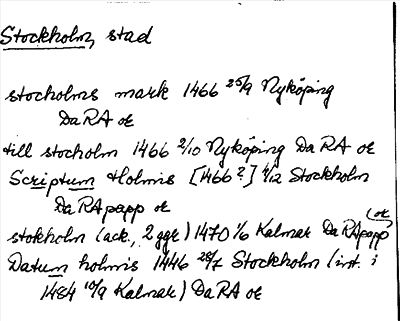 Stockholm, stad
stocholms mark 1466 25/9 Nyköping
DaRA or
till stocholm 1466 2/10 Nyköping DaRA or
Scriptum Holmis [1466?] 4/12 Stockholm
DaRApapp or
stokholm (ack., 2 ggr) 1470 1/6 Kalmar DaRApapp (or
Datum holmis 1446 28/7 Stockholm (int. i
1484 10/9 Kalmar) DaRA or